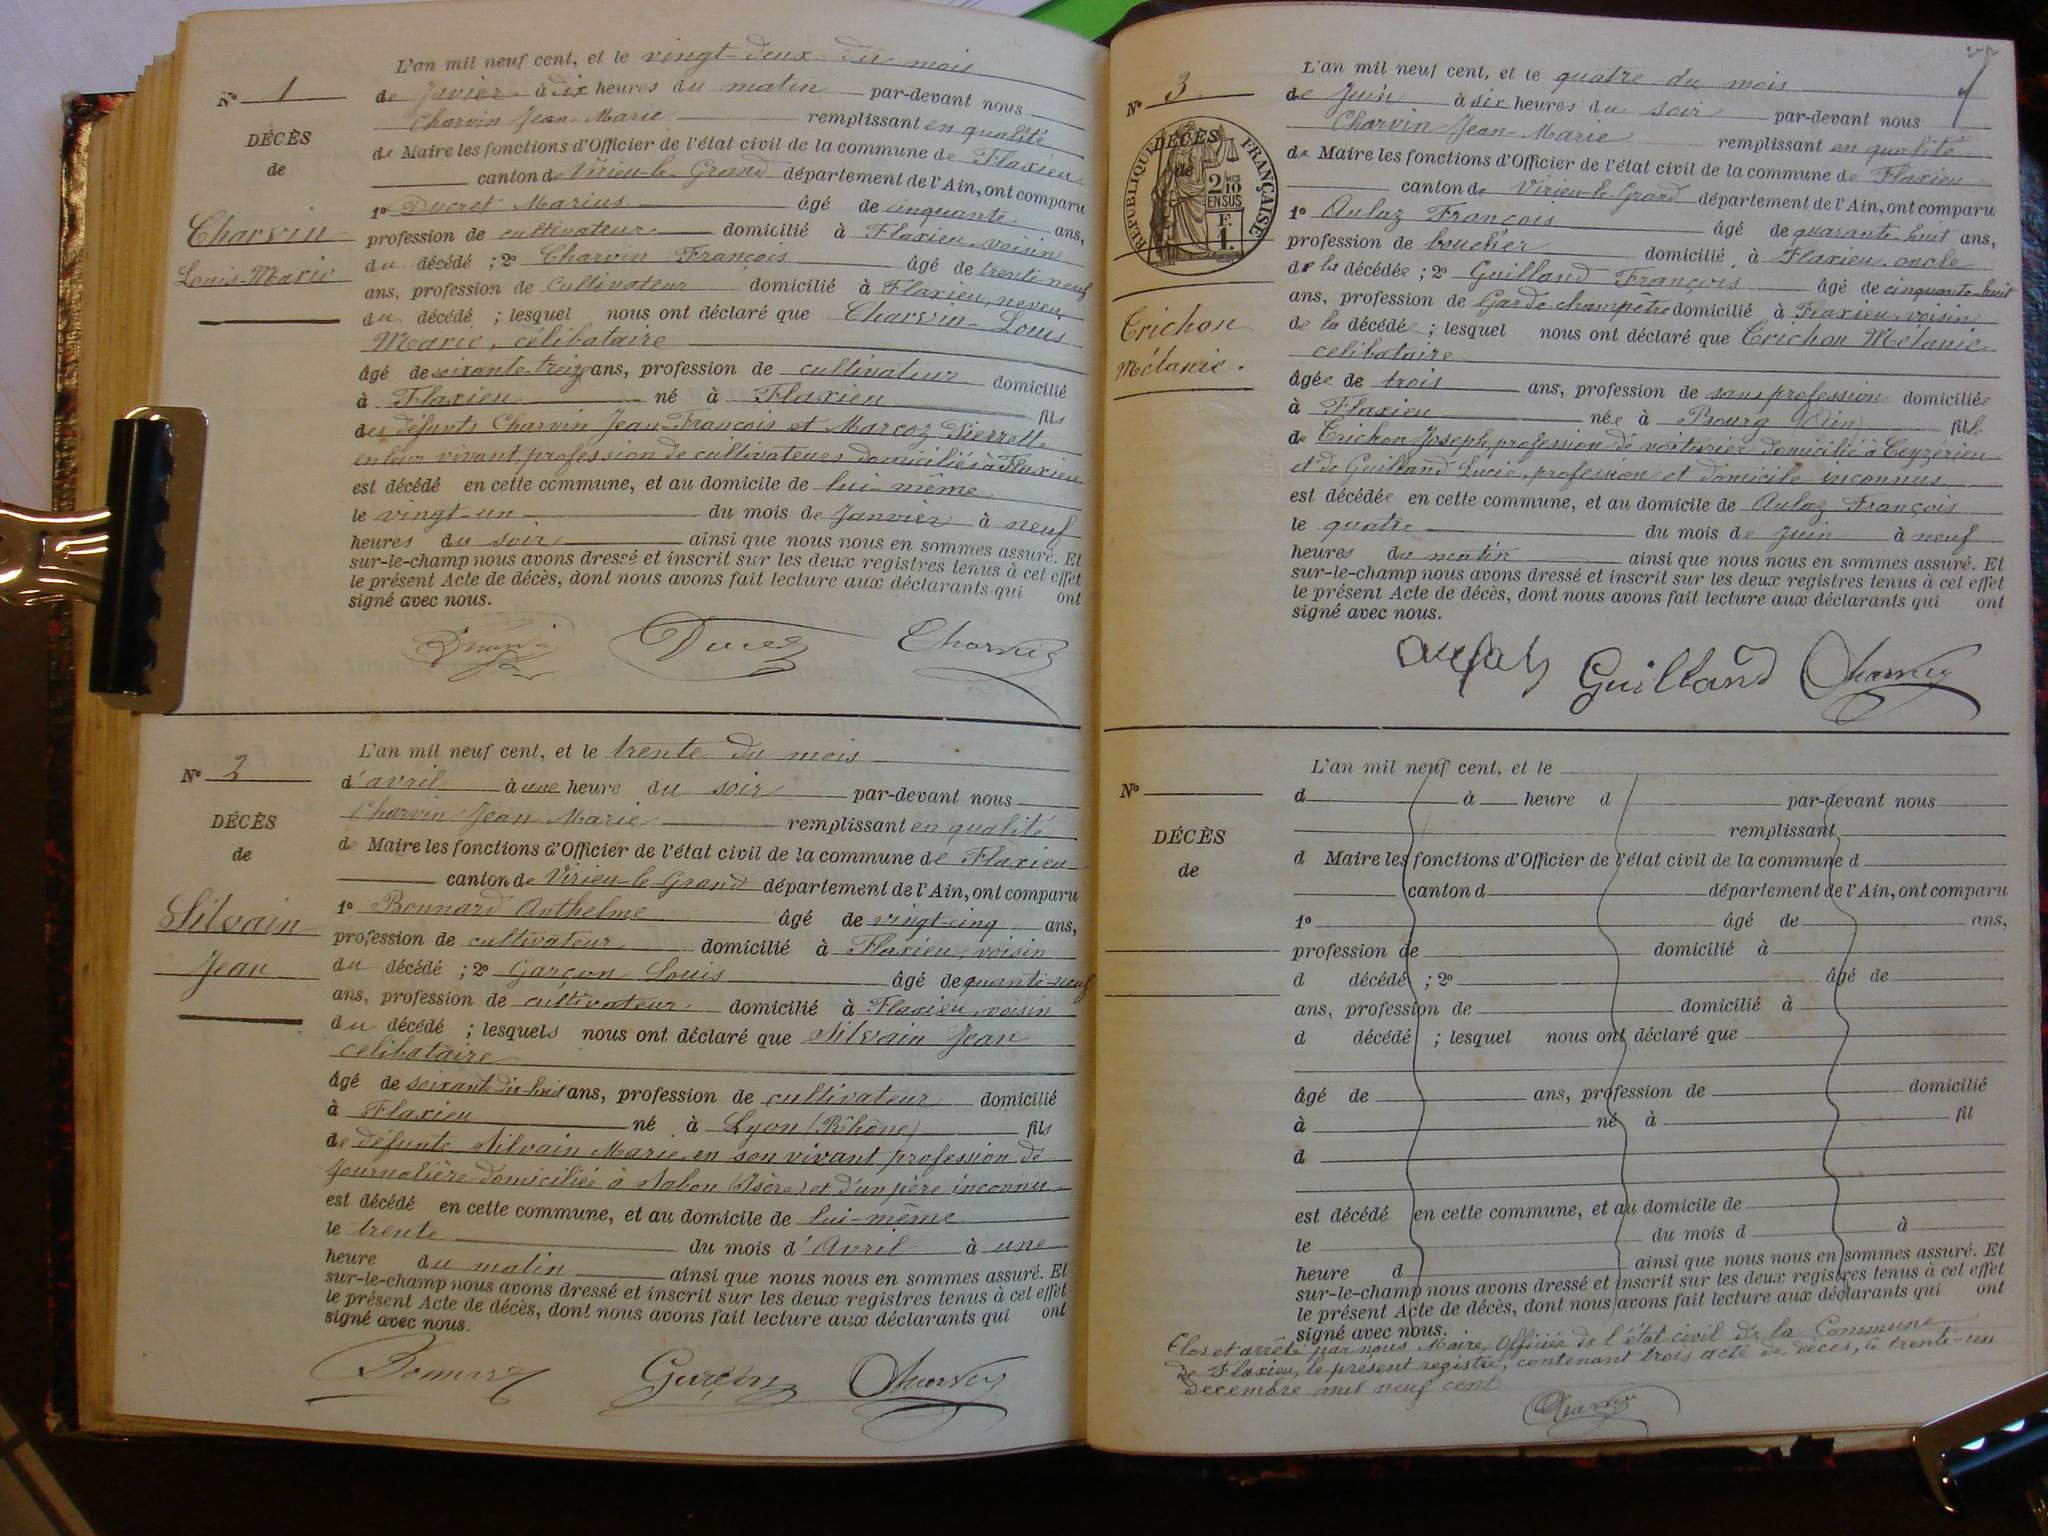 N° 1
DÉCÈS
de
Charvin
Louis-Marie
L'an mil neuf cent, et le vingt-deux du mois
de Javier à dix heures du matin par-devant nous
Charvin Jean-Marie remplissant en qualité
de Maire les fonctions d'Officier de l'état civil de la commune de Flaxieu
canton de Virieu-le-Grand département de l'Ain, ont comparu
1° Ducret Marius âgé de cinquante ans,
profession de cultivateur domicilié à Flaxieu, voisin
du décédé ; 2° Charvin François âgé de trente-neuf
ans, profession de cultivateur domicilié à Flaxieu, neveu
du décédé ; lesquel nous ont déclaré que Charvin-Louis
Marie, célibataire
âgé de soixante-treize ans, profession de cultivateur domicilié
à Flaxieu né à Flaxieu fils
des défunts Charvin Jean François et Marcoz Pierrette
en leur vivant, profession de cultivateurs domiciliés à Flaxieu
est décédé en cette commune, et au domicile de lui-même
le vingt-un du mois de Janvier à neuf
heures du soir ainsi que nous nous en sommes assuré. Et
sur-le-champ nous avons dressé et inscrit sur les deux registres tenus à cet effet
le présent Acte de décès, dont nous avons fait lecture aux déclarants qui ont
signé avec nous.
Ducret Charvin
N° 2
DÉCÈS
de
Silvain
Jean
L'an mil neuf cent, et le trente du mois
d'avril à une heure du soir par-devant nous
Charvin Jean Marie remplissant en qualité
de Maire les fonctions d'Officier de l'état civil de la commune de Flaxieu
canton de Virieu-le-Grand département de l'Ain, ont comparu
1° Bonnard Anthelme âgé de vingt-cinq ans,
profession de cultivateur domicilié à Flaxieu, voisin
du décédé ; 2° Garçon Louis âgé de quante-neuf
ans, profession de cultivateur domicilié à Flaxieu, voisin
du décédé ; lesquels nous ont déclaré que Silvain Jean
celibataire
âgé de soixante dix-huit ans, profession de cultivateur domicilié
à Flaxieu né à Lyon (Rhône) fils
de défunte Silvain Marie, en son vivant profession de
journalière domiciliée à Sabon (Isère) et d'un père inconnu
est décédé en cette commune, et au domicile de lui-même
le trente du mois d'Avril à une
heure du matin ainsi que nous nous en sommes assuré. Et
sur-le-champ nous avons dressé et inscrit sur les deux registres tenus à cet effet
le présent Acte de décès, dont nous avons fait lecture aux déclarants qui ont
signé avec nous.
Bonnard Garçon Charvin
N° 3
DÉCÈS
de
RÉPUBLIQUE FRANÇAISE
2 MES
10
EN SUS
F.
1.
Crichon
Mélanie.
L'an mil neuf cent, et le quatre du mois
de Juin à six heures du soir par-devant nous
Charvin Jean-Marie remplissant en qualité
de Maire les fonctions d'Officier de l'état civil de la commune de Flaxieu
canton de Virieu-le-Grand département de l'Ain, ont comparu
1° Aulaz François âgé de quarante-huit ans,
profession de boucher domicilié à Flaxieu, oncle
de la décédée ; 2° Guilland François âgé de cinquante-huit
ans, profession de Garde-champêtre domicilié à Flaxieu, voisin
de la décédée ; lesquel nous ont déclaré que Crichon Mélanie
celibataire
âgée de trois ans, profession de sans profession domiciliée
à Flaxieu née à Bourg (Ain) fille
de Crichon Joseph, profession de voiturier domicilié à Ceyzérieu
et de Guilland Lucie, profession et domicile inconnus
est décédée en cette commune, et au domicile de Aulaz François
le quatre du mois de Juin à neuf
heures du matin ainsi que nous nous en sommes assuré. Et
sur-le-champ nous avons dressé et inscrit sur les deux registres tenus à cet effet
le présent Acte de décès, dont nous avons fait lecture aux déclarants qui ont
signé avec nous.
Guilland Charvin
N°
DÉCÈS
de
L'an mil neuf cent, et le
d à heure d par-devant nous
remplissant
d Maire les fonctions d'Officier de l'état civil de la commune d
canton d département de l'Ain, ont comparu
1° âgé de ans,
profession de domicilié à
d décédé ; 2° âgé de
ans, profession de domicilié à
d décédé ; lesquel nous ont déclaré que
âgé de ans, profession de domicilié
à né à fil
d
est décédé en cette commune, et au domicile de
le du mois d à
heure d ainsi que nous nous en sommes assuré. Et
sur-le-champ nous avons dressé et inscrit sur les deux registres tenus à cet effet
le présent Acte de décès, dont nous avons fait lecture aux déclarants qui ont
signé avec nous.
Clos et arrêté par nous Maire, Officier de l'état civil de la Commune
de Flaxieu, le présent registre, contenant trois acte de décès, le trente-un
decembre mil neuf cent
Charvin